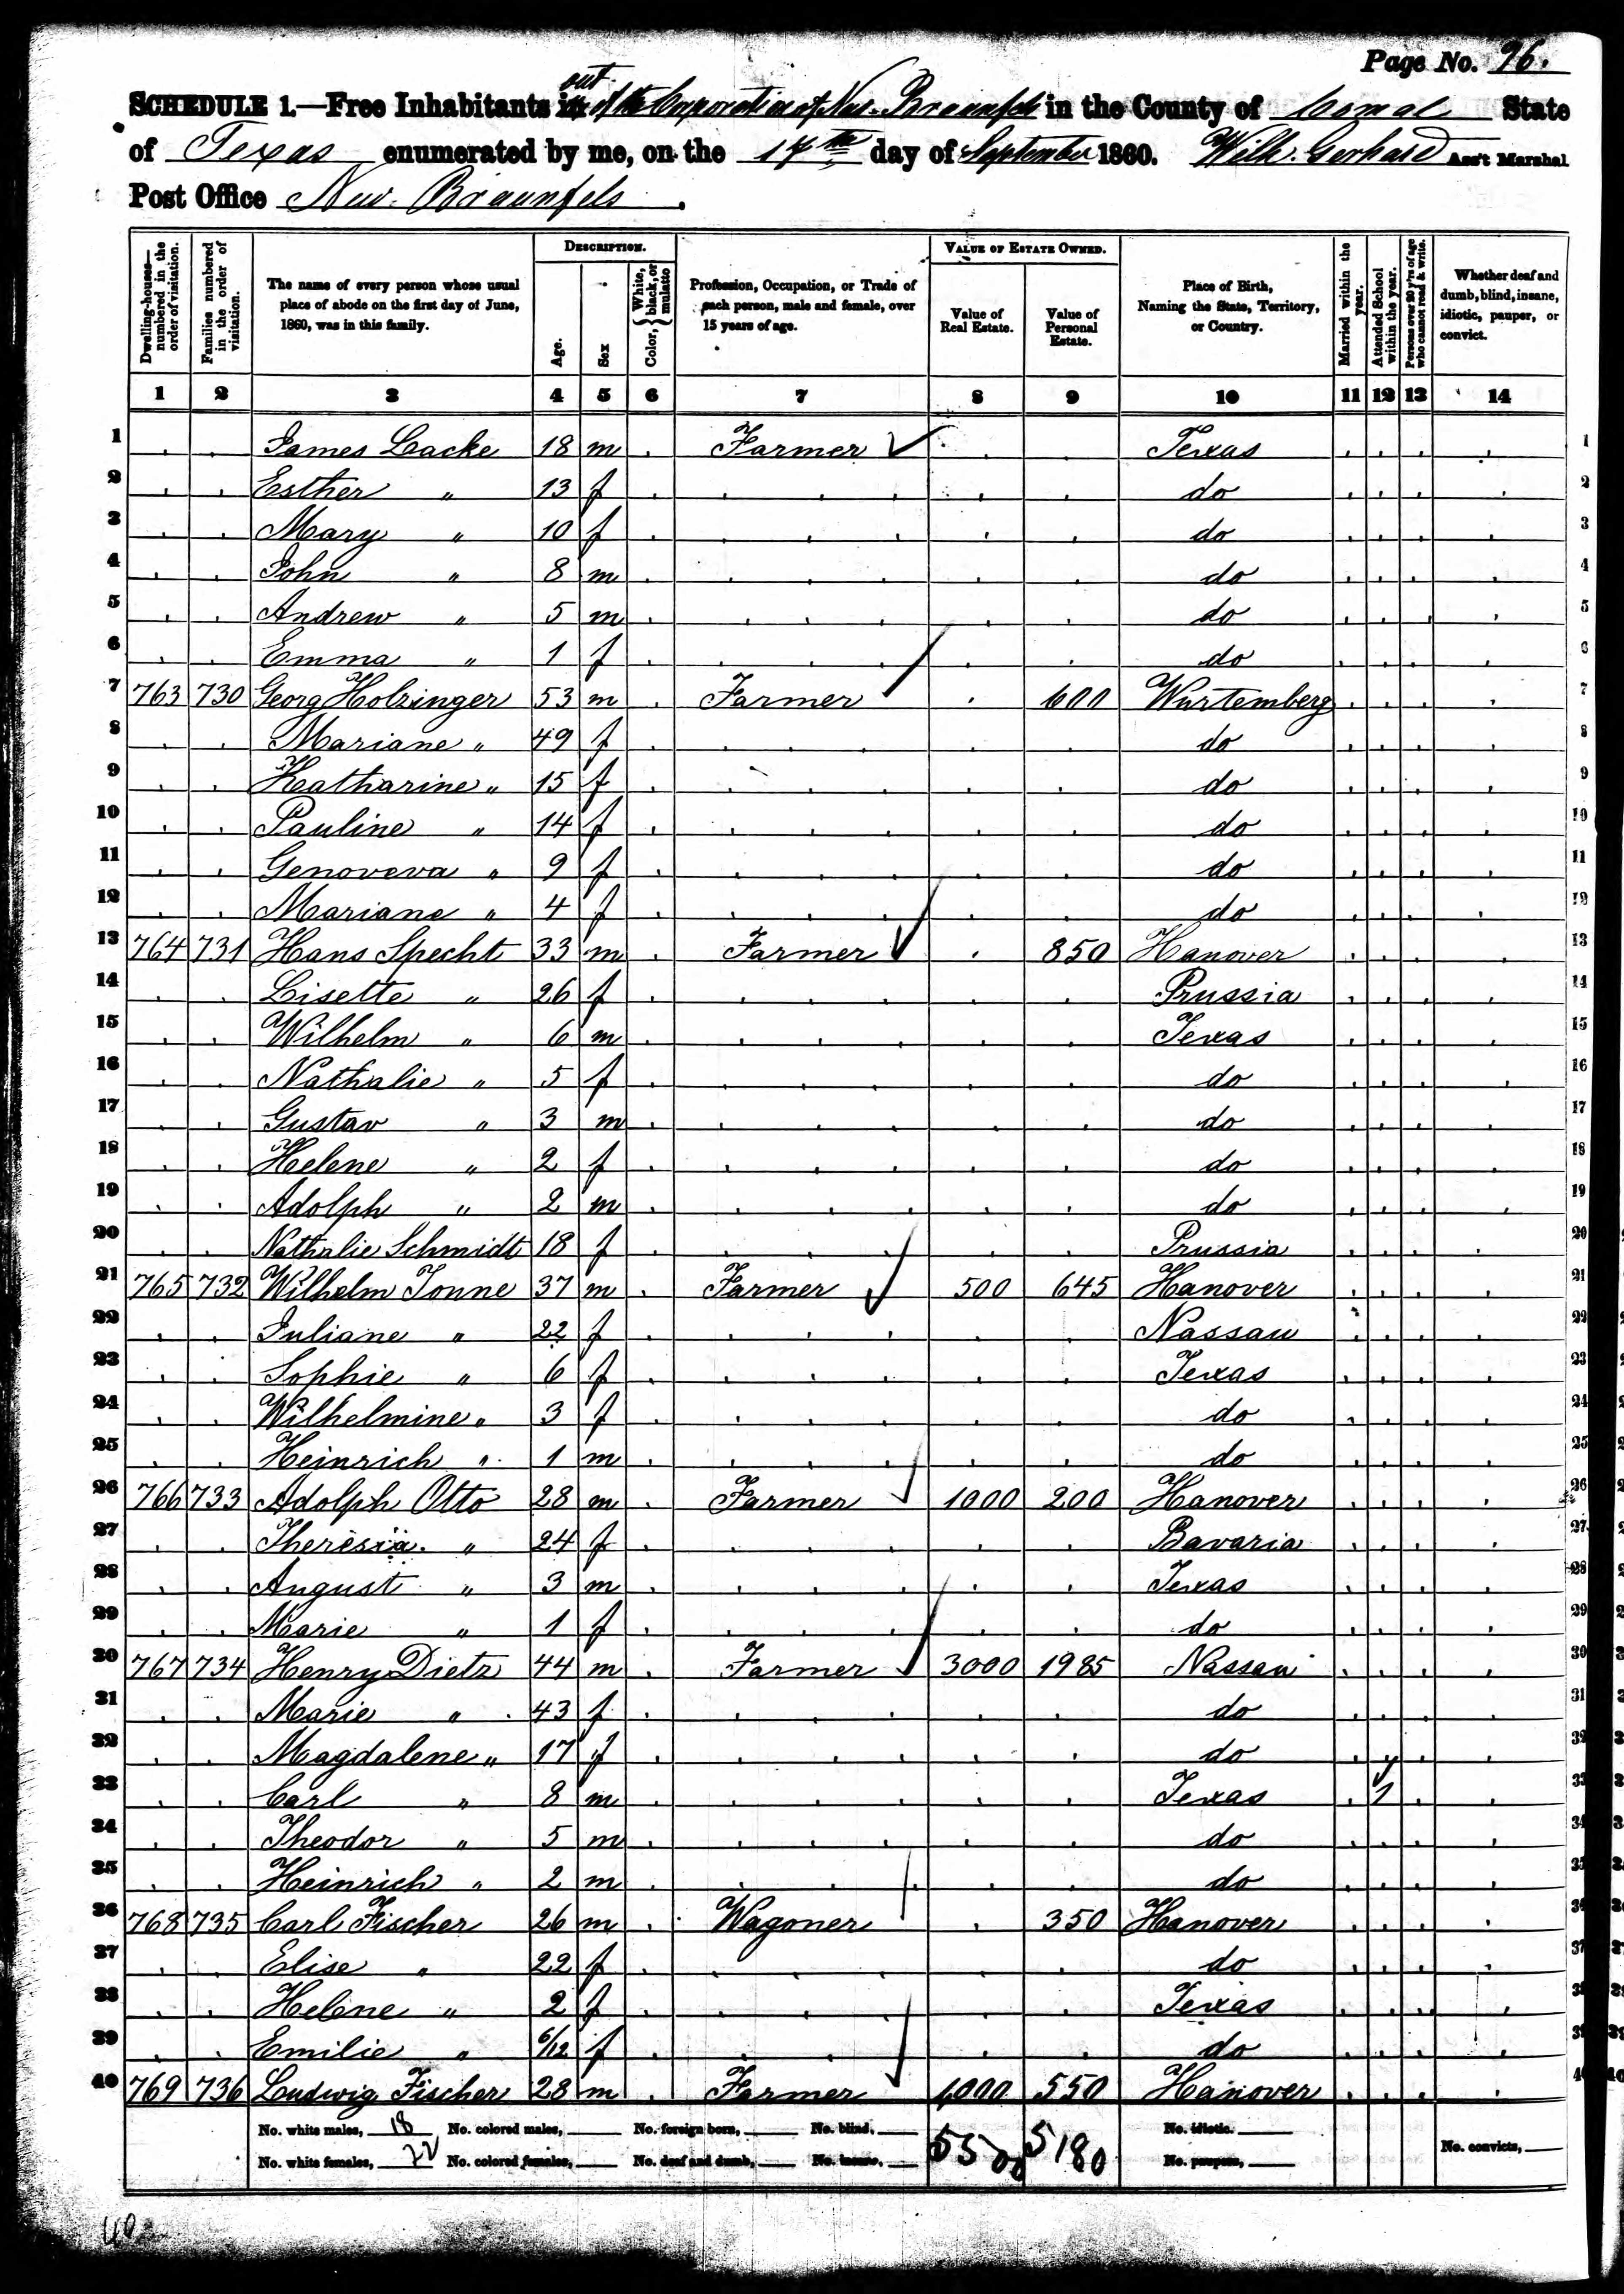 Page No. 96.
SCHEDULE 1.—Free Inhabitants in out of the Corporation of New-Braunfels in the County of Comal State
of Texas enumerated by me, on the 17th day of September 1860. Wilh. Gerhard Ass't Marshal
Post Office New-Braunfels.
Dwelling-houses—numbered in the order of visitation.
Families numbered in the order of visitation.
The name of every person whose usual place of abode on the first day of June, 1860, was in this family.
DESCRIPTION.
Age.
Sex
Color, White, black, or mulatto
Profession, Occupation, or Trade of each person, male and female, over 15 years of age.
VALUE OF ESTATE OWNED.
Value of Real Estate.
Value of Personal Estate.
Place of Birth, Naming the State, Territory, or Country.
Married within the year.
Attended School within the year.
Persons over 20 y'rs of age who cannot read & write.
Whether deaf and dumb, blind, insane, idiotic, pauper, or convict.
1 2 3 4 5 6 7 8 9 10 11 12 13 14
1 James Lacke 18 m Farmer Texas 1
2 Esther " 13 f do 2
3 Mary " 10 f do 3
4 John " 8 m do 4
5 Andrew " 5 m do 5
6 Emma " 1 f do 6
7 763 730 Georg Holzinger 53 m Farmer 600 Wurtemberg 7
8 Mariane " 49 f do 8
9 Katharine " 15 f do 9
10 Pauline " 14 f do 10
11 Genoveva " 9 f do 11
12 Mariane " 4 f do 12
13 764 731 Hans Specht 33 m Farmer 850 Hanover 13
14 Lisette " 26 f Prussia 14
15 Wilhelm " 6 m Texas 15
16 Nathalie " 5 f do 16
17 Gustav " 3 m do 17
18 Helene " 2 f do 18
19 Adolph " 2 m do 19
20 Nathalie Schmidt 18 f Prussia 20
21 765 732 Wilhelm Tonne 37 m Farmer 500 645 Hanover 21
22 Juliane " 22 f Nassau 22
23 Sophie " 6 f Texas 23
24 Wilhelmine " 3 f do 24
25 Heinrich " 1 m do 25
26 766 733 Adolph Otto 28 m Farmer 1000 200 Hanover 26
27 Theresia " 24 f Bavaria 27
28 August " 3 m Texas 28
29 Marie " 1 f do 29
30 767 734 Henry Dietz 44 m Farmer 3000 1985 Nassau 30
31 Marie " 43 f do 31
32 Magdalene " 17 f do 32
33 Carl " 8 m Texas 1 33
34 Theodor " 5 m do 34
35 Heinrich " 2 m do 35
36 768 735 Carl Fischer 26 m Wagoner 350 Hanover 36
37 Elise " 22 f do 37
38 Helene " 2 f Texas 38
39 Emilie " 6/12 f do 39
40 769 736 Ludwig Fischer 28 m Farmer 1000 550 Hanover 40
No. white males, 18 No. colored males, No. foreign born, No. blind, 5500 5180 No. idiotic.
No. white females, 22 No. colored females, No. deaf and dumb, No. insane, No. paupers, No. convicts,
40